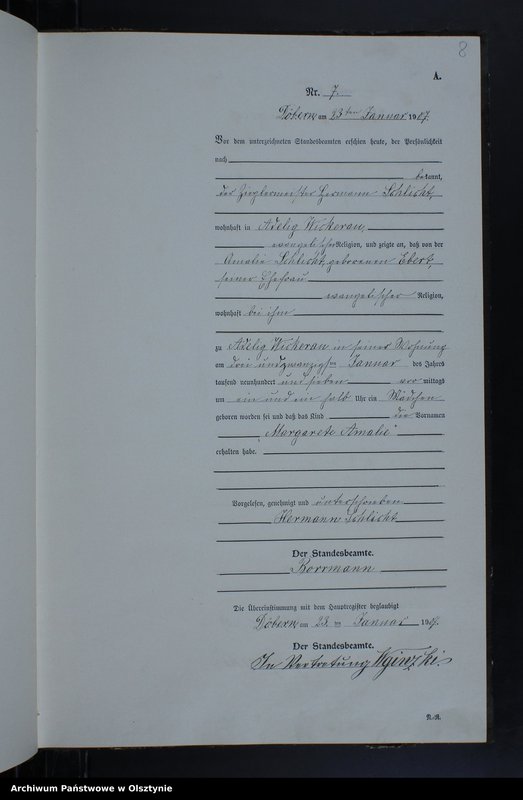 8
A.
Nr. 7.
Döbern am 23ten Januar 1907.
Vor dem unterzeichneten Standesbeamten erschien heute, der Persönlichkeit
nach
bekannt,
der Zieglermeister Hermann Schlicht,
wohnhaft in Adelig Wickerau,
evangelischer Religion, und zeigte an, daß von der
Amalie Schlicht, geborenen Ebert,
seiner Ehefrau
evangelischer Religion,
wohnhaft bei ihm
zu Adelig Wickerau in seiner Wohnung
am drei und zwanzigsten Januar des Jahres
tausend neunhundert und sieben vor mittags
um ein und ein halb Uhr ein Mädchen
geboren worden sei und daß das Kind die Vornamen
„Margarete Amalie“
erhalten habe.
Vorgelesen, genehmigt und unterschrieben
Hermann Schlicht
Der Standesbeamte.
Borrmann
Die Übereinstimmung mit dem Hauptregister beglaubigt
Döbern am 23. ten Januar 1907.
Der Standesbeamte.
In Vertretung
A.-R.
Archiwum Państwowe w Olsztynie